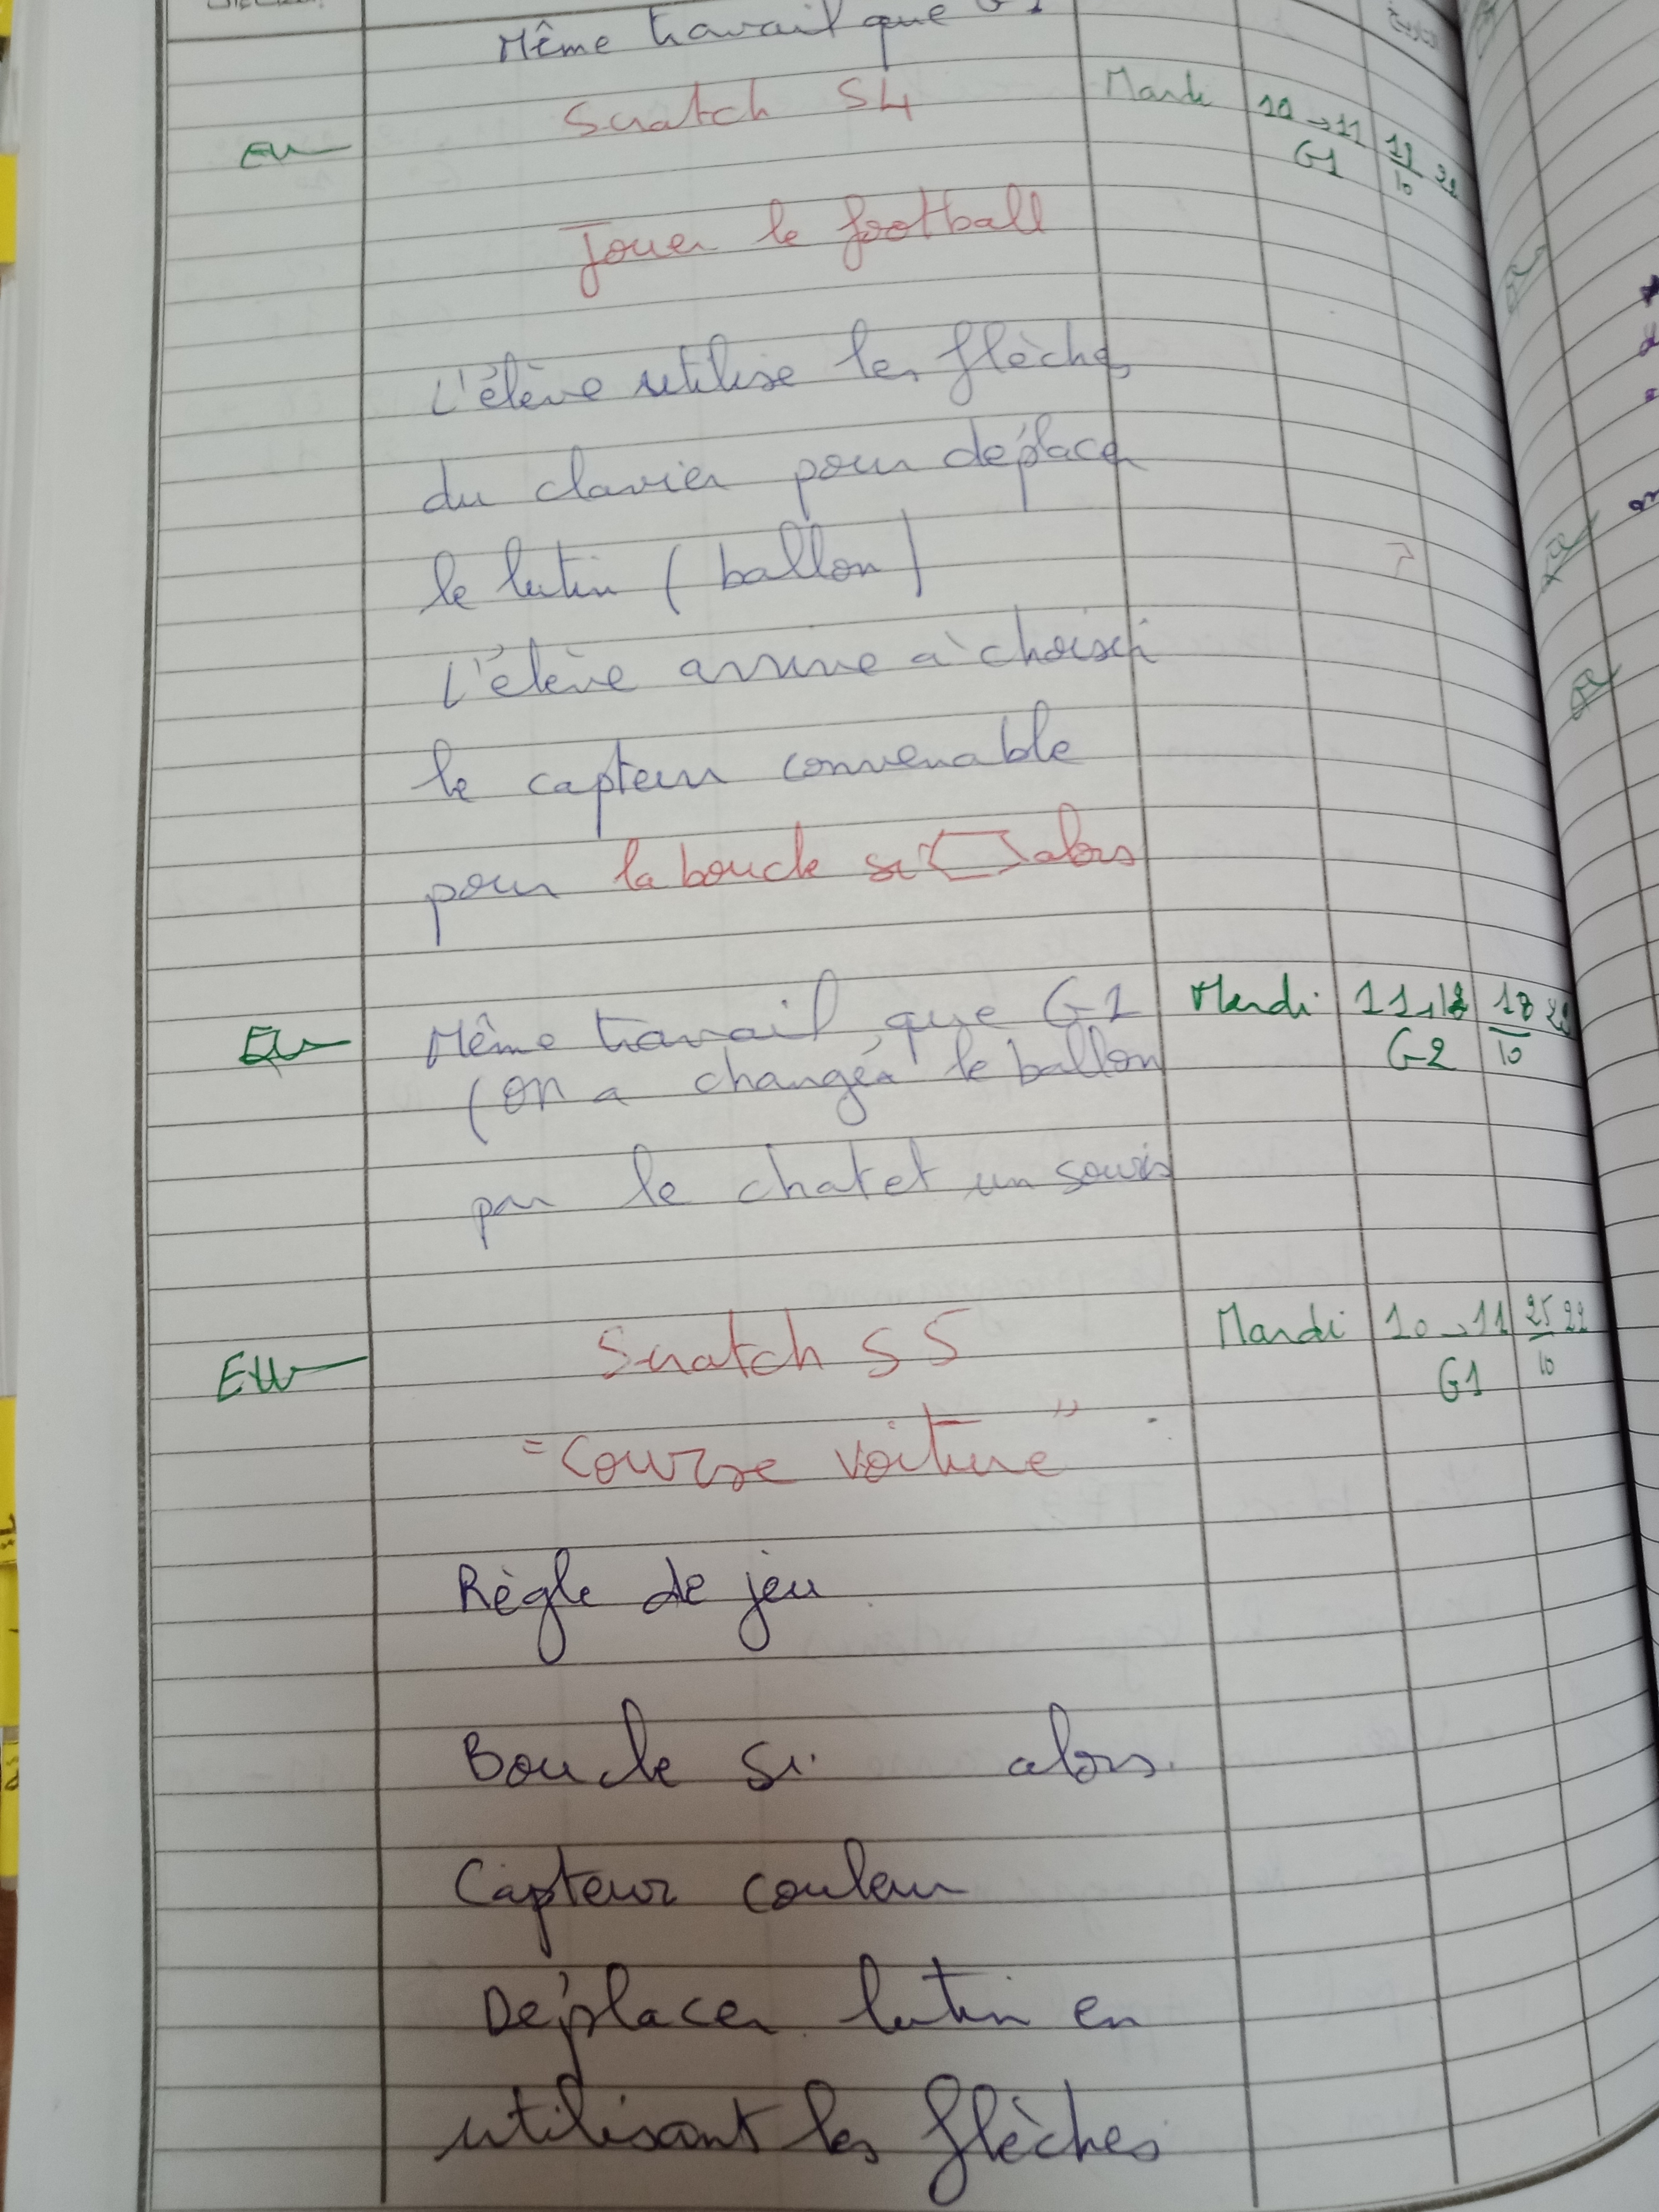 Même travail que G1
Scratch S4 Mardi 10 → 11 18/10 22
G1
Jouer le football
L'élève utilise les flèches
du clavier pour déplacer
le lutin (ballon)
L'élève arrive à choisir
le capteur convenable
pour la boucle si < > alors
Même travail que G1 Mardi 11 → 12 18/10 22
G2
(on a changer le ballon
par le chat et un souris
Scratch S5 Mardi 10 → 11 25/10 22
G1
"Course voiture"
Règle de jeu
Boucle si alors
Capteur couleur
Déplacer lutin en
utilisant les flèches